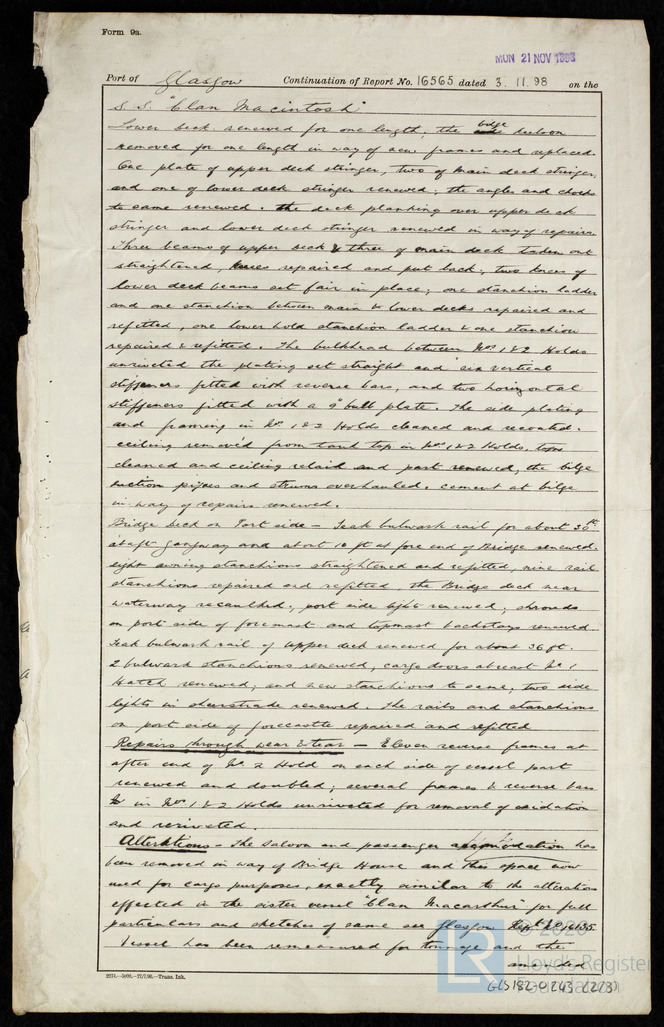 Form 9a.
MON 21 NOV 1898
Port of Glasgow Continuation of Report No. 16565 dated 3. 11. 98 on the
S. S. "Clan Macintosh"
Lower deck renewed for one length, the bilge keelson
removed for one length in way of new frames and replaced.
One plate of upper deck stringer, two of main deck stringer,
and one of lower deck stringer renewed; the angles and chocks
to same renewed. the deck planking over upper deck
stringer and lower deck stringer renewed in way of repairs.
Three beams of upper deck & three of main deck taken out
straightened, knees repaired and put back, two knees of
lower deck beams set fair in place; one stanchion ladder
and one stanchion between main & lower decks repaired and
refitted, one lower hold stanchion ladder & one stanchion
repaired & refitted. The bulkhead between Nos 1 & 2 Holds
unriveted the plating set straight and six vertical
stiffeners fitted with reverse bars, and two horizontal
stiffeners fitted with a 9" bulb plate. The side plating
and framing in Nos 1 & 2 Holds cleaned and recoated.
ceiling removed from tank top in Nos 1 & 2 Holds, tops
cleaned and ceiling relaid and part renewed, the bilge
suction pipes and strums overhauled. cement at bilge
in way of repairs renewed.
Bridge Deck on Port side - Teak bulwark rail for about 30 ft
at aft gangway and about 10 ft at fore end of Bridge renewed.
eight awning stanchions straightened and refitted, nine rail
stanchions repaired and refitted the Bridge deck near
waterway recaulked, port side light renewed; shrouds
on port side of foremast and topmast backstays renewed.
Teak bulwark rail of upper deck renewed for about 36 ft.
2 bulwark stanchions renewed, cargo doors abreast No 1
Hatch renewed, and new stanchions to same; two side
lights in sheerstrake renewed. The rails and stanchions
on port side of forecastle repaired and refitted
Repairs through wear & tear - Eleven reverse frames at
after end of No 2 Hold on each side of vessel part
renewed and doubled; several frames & reverse bars
in Nos 1 & 2 Holds unriveted for removal of oxidation
and reriveted.
Alterations - The saloon and passenger accomodation has
been removed in way of Bridge House and this space now
used for cargo purposes, exactly similar to the alterations
effected in the sister vessel "Clan Macarthur" for full
particulars and sketches of same see Glasgow Rept No 16135
Vessel has been remeasured for tonnage and the
amended
2274.—5000.—27/7/98.—Trans. Ink.
© 2020
LR
Lloyd's Register
Foundation
GLS182-0243 (223)